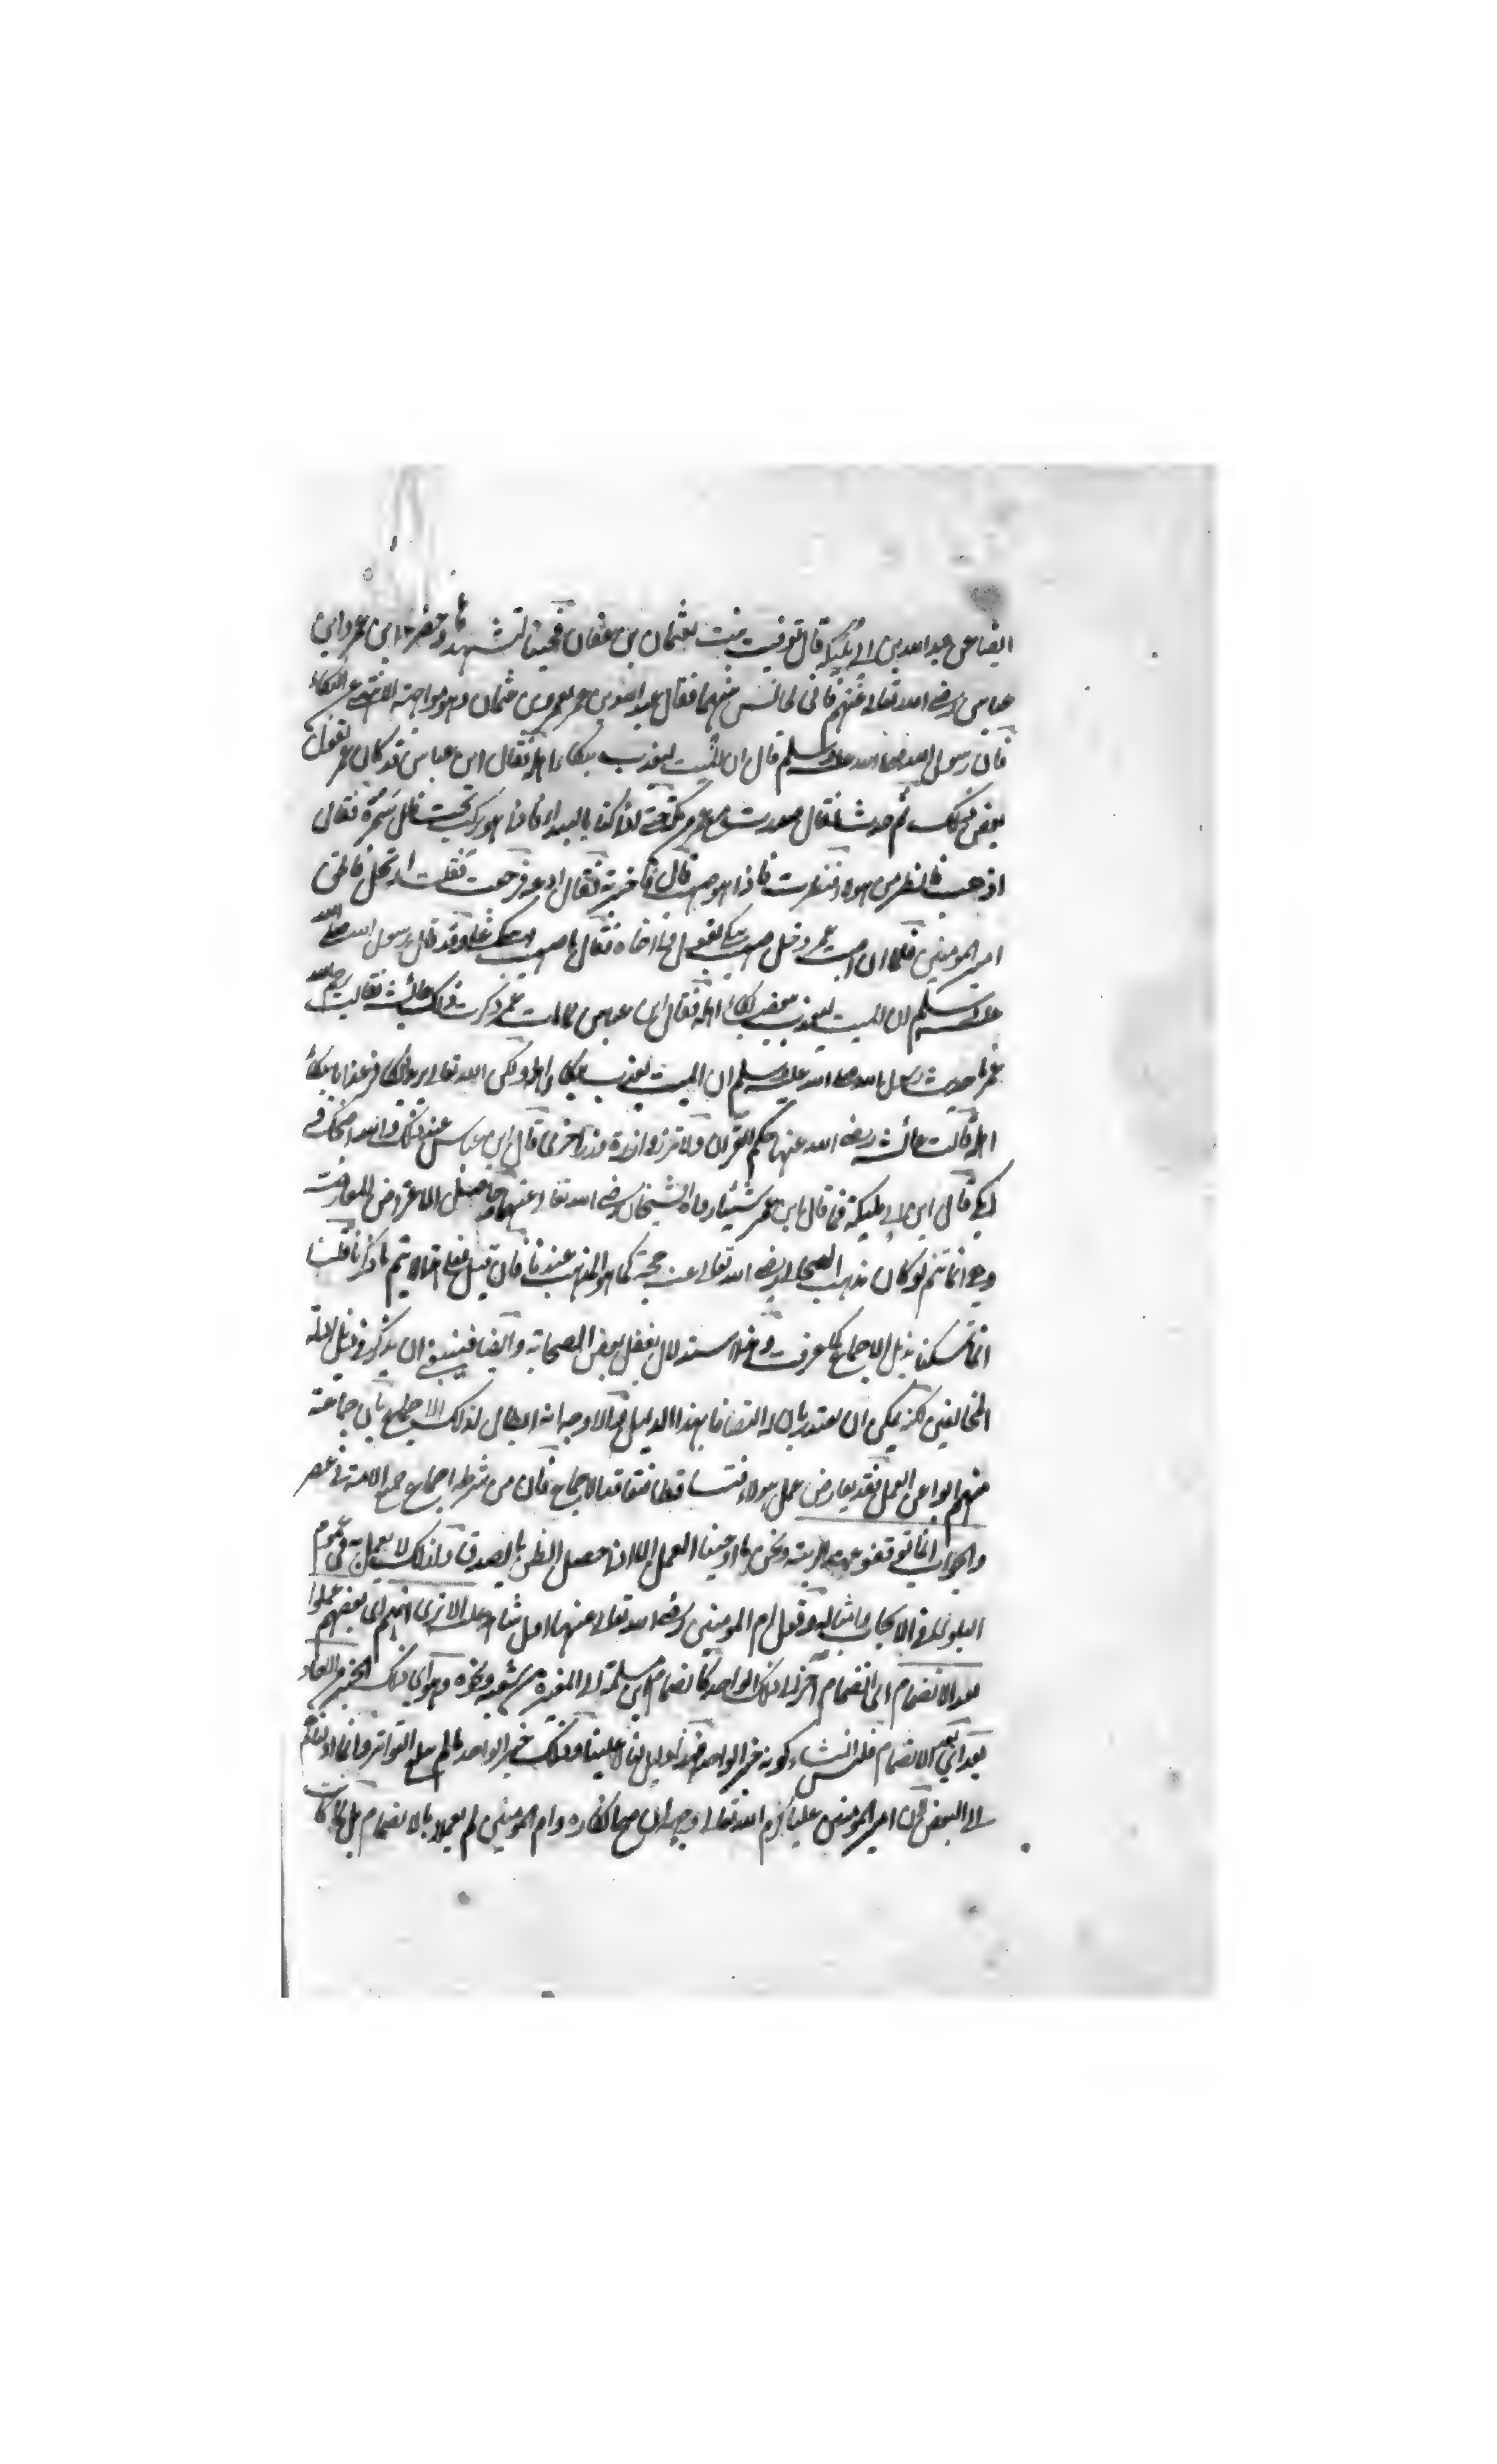 ايضا عن عبد الله بن ابي مليكة قال توفيت بنت لعثمان بن عفان فجئنا لنشهدها وحضرها ابن عمر وابن
عباس رضي الله تعالى عنهم فاني لجالس بينهما فقال عبد الله بن عمر لعمرو بن عثمان وهو مواجهه الا تنتهي عن البكاء
فان رسول الله صلى الله عليه وسلم قال ان الميت ليعذب ببكاء اهله فقال ابن عباس قد كان عمر يقول
بعض ذلك ثم حدث فقال صدرت مع عمر من مكة حتى اذا كنا بالبيداء فاذا هو بركب تحت ظل سمرة فقال
اذهب فانظر من هؤلاء فنظرت فاذا هو صهيب قال فاخبرته فقال ادعه فرجعت فقلت ارتحل فالحق
امير المومنين فلما ان اصيب عمر دخل صهيب يبكي يقول وا اخاه فقال يا صهيب اتبكي علي وقد قال رسول الله صلى الله
عليه وسلم ان الميت ليعذب ببعض بكاء اهله فقال ابن عباس فلما مات عمر ذكرت ذلك لعائشة فقالت يرحم الله
عمر ما حدث رسول الله صلى الله عليه وسلم ان الميت يعذب ببكاء اهله ولكن الله تعالى يزيد الكافر عذابا ببكاء
اهله قالت عائشة رضي الله عنها حسبكم القرآن ولا تزر وازرة وزر اخرى قال ابن عباس عند ذلك والله اضحك و
ابكى قال ابن ابي مليكة فما قال ابن عمر شيئا رواه الشيخان رضي الله تعالى عنهما الاعتراض المعارضة
وهي انما تتم لو كان مذهب الصحابي رضي الله تعالى عنه حجة كما هو المذهب عندنا فان قيل فعلى هذا لا يتم ما ذكر قلنا
انما تمسكنا بذيل الاجماع كما عرفت وهذا استدلال بفعل بعض الصحابة وايضا فينبغي ان يذكر في ذيل ادلة
المخالفين لكنه يمكن ان يعتذر بان له التصاقا بهذا الدليل والاوجه انه ابطال لذلك الاجماع بان جماعة
منهم ابوا عن العمل فقد يعارض عمل هولاء فتساقطا فقد الاجماع فان من شرطه اجماع جميع الامة في عصر
والجواب انما توقفوا عند الريبة ونحن ما اوجبنا العمل الا اذا حصل الظن بالصدق ولذلك لا يعمل به في عموم
البلوى وفي الايجاب وامثاله وقول ام المومنين رضي الله تعالى عنها اول شاهد الا ترى انهم اي بعضهم عملوا
بعد الانضمام اي انضمام آخر الى ذلك الواحد كانضمام ابن مسلمة الى المغيرة بن شعبة وغيره وهو اي ذلك الخبر من الآحاد
بعد اي بعد الانضمام فليس كونه خبر الواحد فهذا دليل لنا لا علينا وذلك خبر الواحد ما لم يبلغ التواتر وانما
الى البعض لان امير المومنين عليا كرم الله تعالى وجهه ان صح انكاره وام المومنين لم يعملا بالانضمام بل